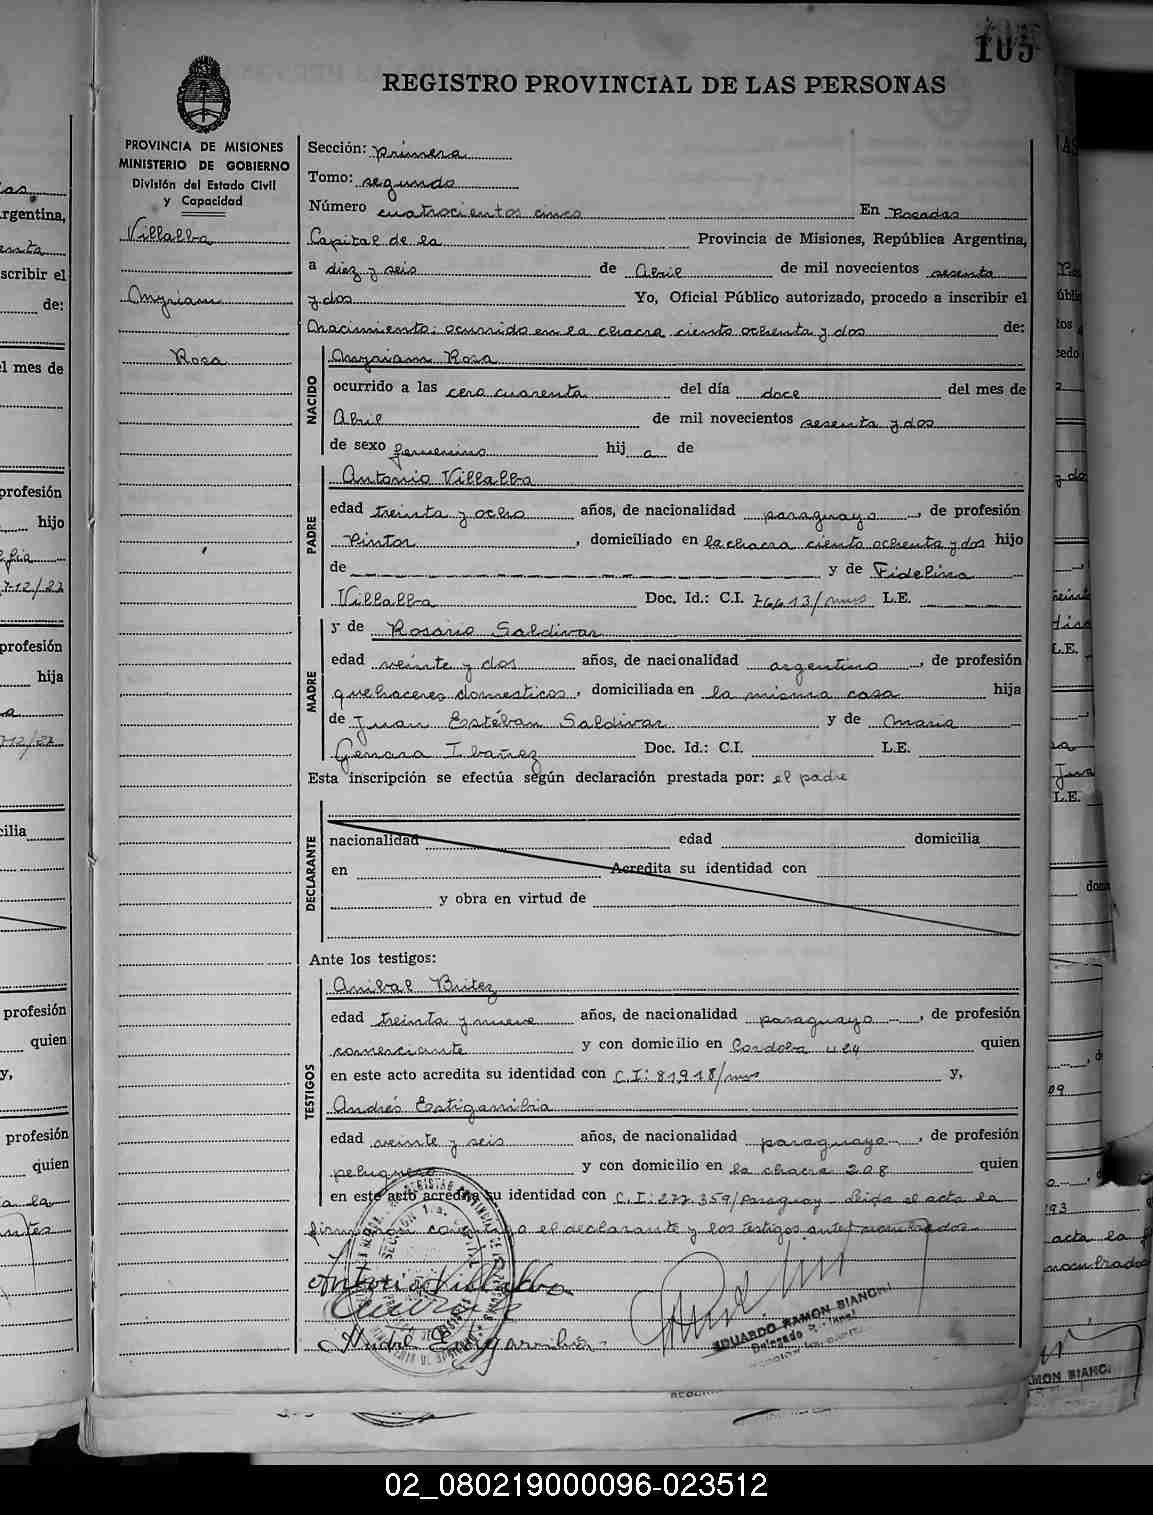 105
REGISTRO PROVINCIAL DE LAS PERSONAS
PROVINCIA DE MISIONES
MINISTERIO DE GOBIERNO
División del Estado Civil
y Capacidad
Villalba
Myriam
Rosa
Sección: primera
Tomo: segundo
Número cuatrocientos cinco En Posadas
Capital de la Provincia de Misiones, República Argentina,
a diez y seis de Abril de mil novecientos sesenta
y dos Yo, Oficial Público autorizado, procedo a inscribir el
Nacimiento: ocurrido en la chacra ciento ochenta y dos de:
NACIDO
Myriam Rosa
ocurrido a las cero cuarenta del día doce del mes de
Abril de mil novecientos sesenta y dos
de sexo femenino hij a de
PADRE
Antonio Villalba
edad treinta y ocho años, de nacionalidad paraguayo, de profesión
Pintor, domiciliado en la chacra ciento ochenta y dos hijo
de y de Fidelina
Villalba Doc. Id.: C.I. 76613/mnes L.E.
MADRE
y de Rosario Saldivar
edad veinte y dos años, de nacionalidad argentina, de profesión
quehaceres domesticos, domiciliada en la misma casa hija
de Juan Estéban Saldivar y de Maria
Genara Ibañez Doc. Id.: C.I. L.E.
Esta inscripción se efectúa según declaración prestada por: el padre
DECLARANTE
nacionalidad edad domicilia
en Acredita su identidad con
y obra en virtud de
Ante los testigos:
TESTIGOS
Anibal Britez
edad treinta y nueve años, de nacionalidad paraguayo, de profesión
comerciante y con domicilio en Cordoba 424 quien
en este acto acredita su identidad con C.I: 81918/mnes y,
Andrés Estigarribia
edad veinte y seis años, de nacionalidad paraguayo, de profesión
peluquero y con domicilio en la chacra 208 quien
en este acto acredita su identidad con C.I: 277.359/Paraguay leida el acta la
firmaron conmigo el declarante y los testigos antes nombrados
Antonio Villalba
Andrés Estigarribia
EDUARDO RAMON BIANCHI
02_080219000096-023512